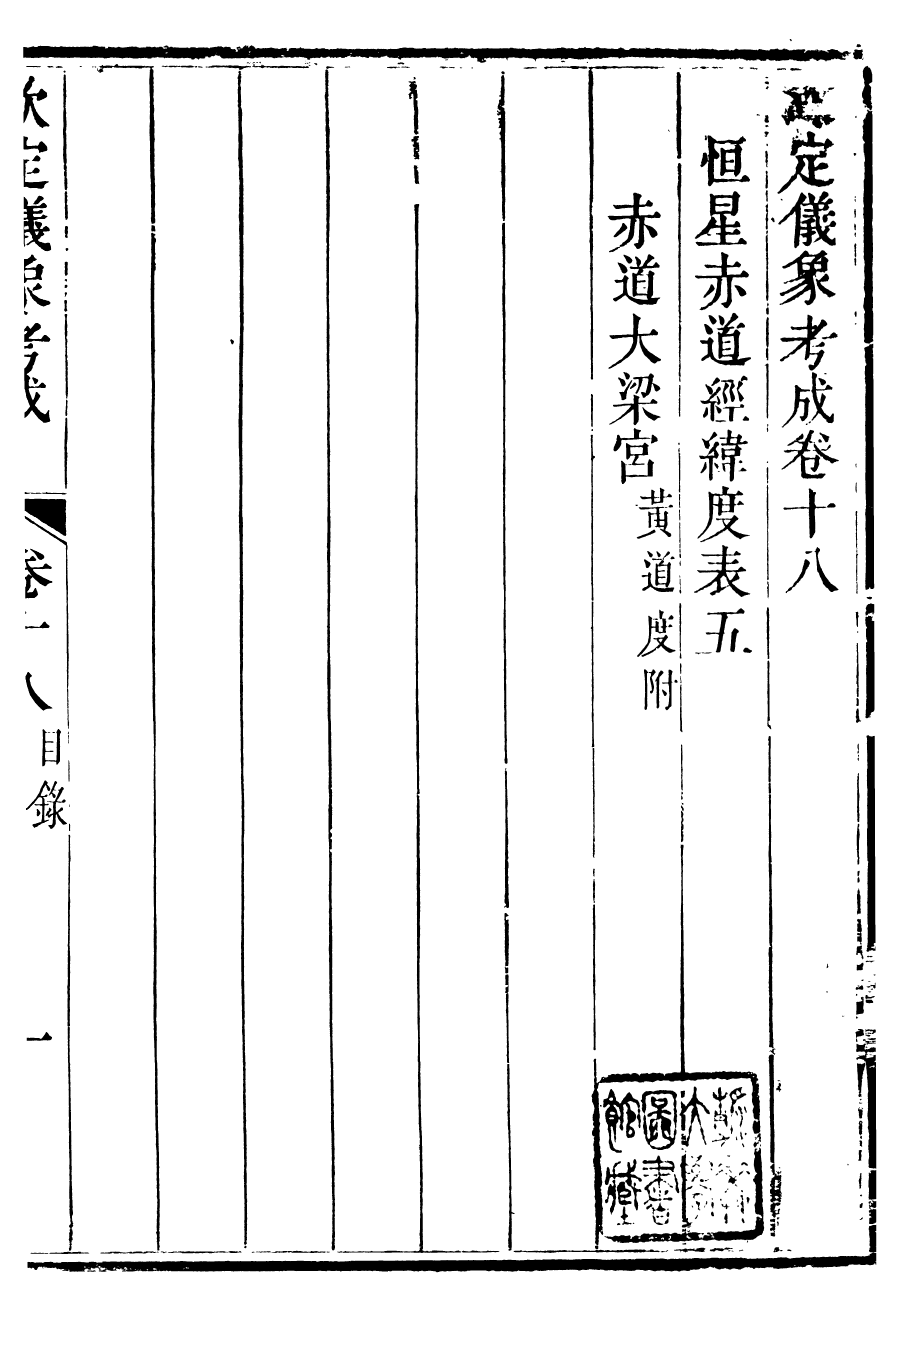 定儀象考成卷十八
恒星赤道經緯度表五
赤道大梁宮黃道度附
欽定儀象考成 卷十八 目錄 一
圖書
館藏